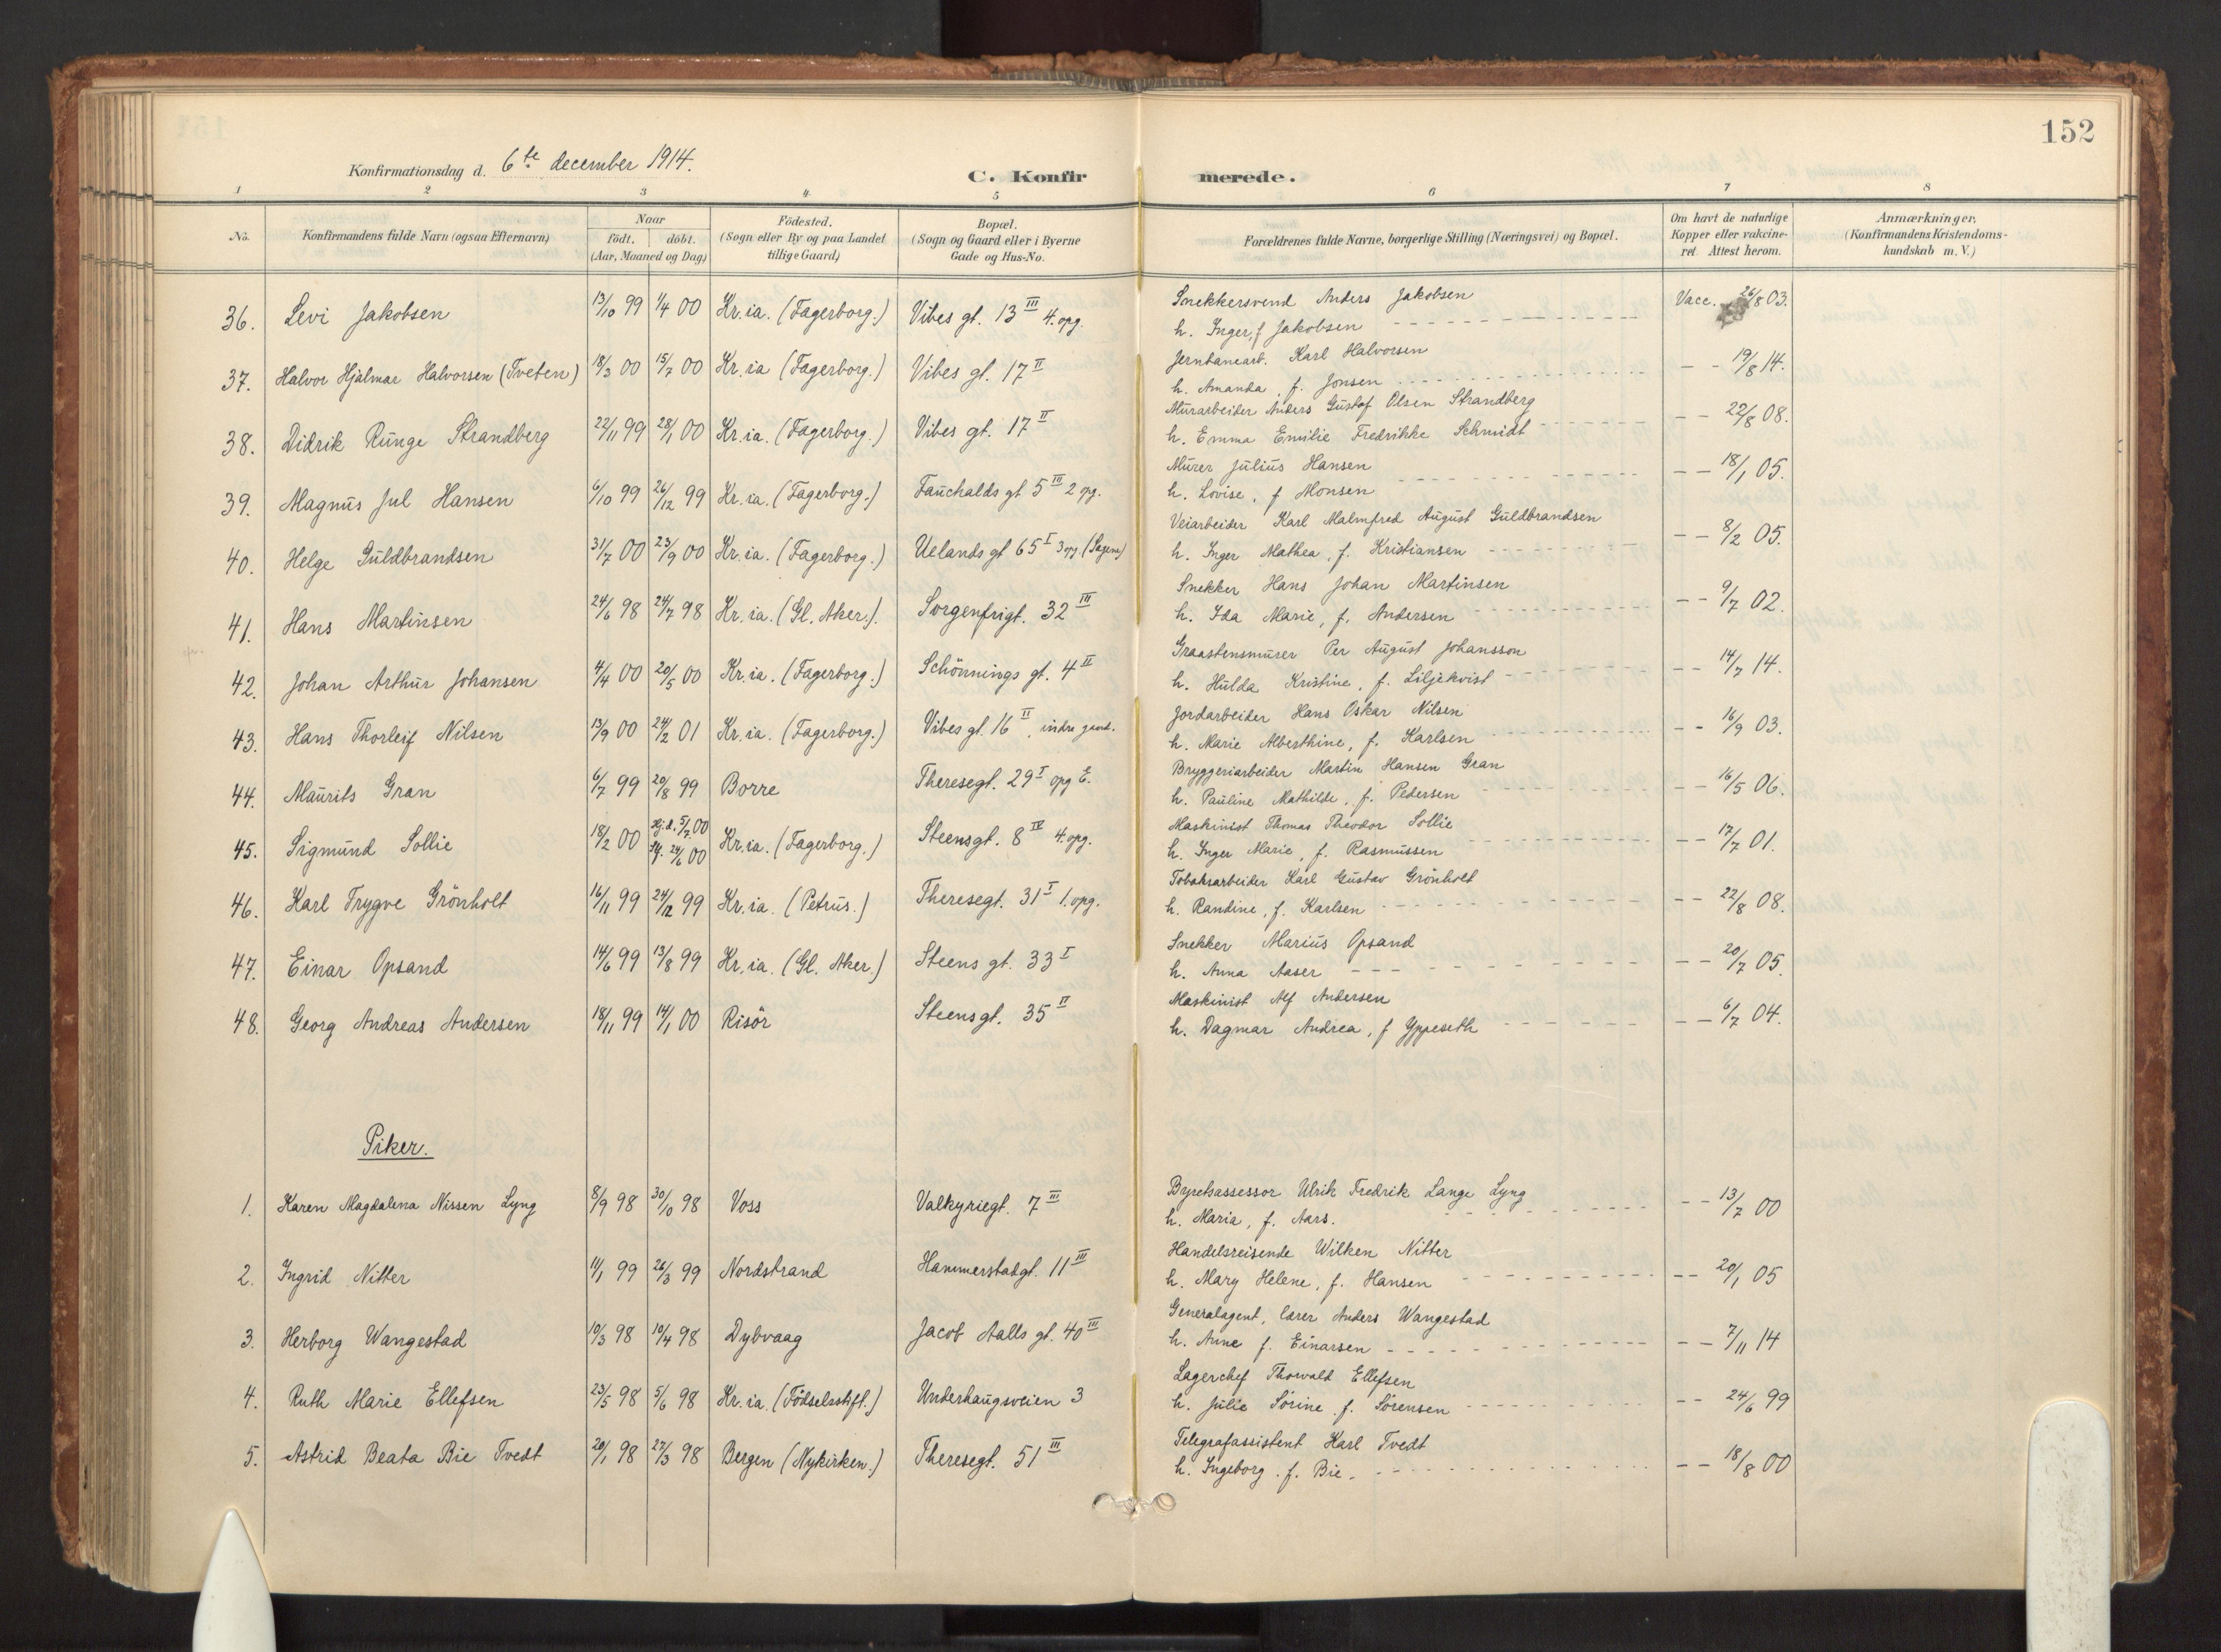 152
Konfirmationsdag d. 6te december 1914.
C. Konfirmerede.
1 2 3 4 5 6 7 8
No. Konfirmandens fulde Navn (ogsaa Efternavn) Naar födt. döbt. (Aar, Maaned og Dag) Födested. (Sogn eller By og paa Landet tillige Gaard) Bopæl. (Sogn og Gaard eller i Byerne Gade og Hus-No. Forældrenes fulde Navne, borgerlige Stilling (Næringsvei) og Bopæl. Om havt de naturlige Kopper eller vakcineret. Attest herom. Anmærkninger. (Konfirmandens Kristendomskundskab m. V.)
36. Levi Jakobsen 13/10 99 1/4 00 Kr.ia. (Fagerborg.) Vibes gt. 13 III 4. opg. Snekkersvend Anders Jakobsen Vacc. 26/8 03.
h. Inger, f Jakobsen
37. Halvor Hjalmar Halvorsen (Tveten) 18/3 00 15/7 00 Kr.ia (Fagerborg.) Vibes gt. 17 II Jernbanearb. Karl Halvorsen - - 19/8 14.
h. Amanda, f. Jonsen
38. Didrik Runge Strandberg 22/11 99 28/1 00 Kr.ia. (Fagerborg.) Vibes gt. 17 II Murarbeider Anders Gustof Olsen Strandberg - - 22/8 08.
h. Emma Emilie Fredrikke Schmidt
39. Magnus Jul Hansen 6/10 99 26/12 99 Kr.ia. (Fagerborg.) Fauchalds gt 5 III 2 opg. Murer Julius Hansen - - 18/1 05.
h. Lovise, f Monsen
40. Helge Guldbrandsen 31/7 00 23/9 00 Kr.ia. (Fagerborg.) Uelands gt 65 I 3 opg. (Sagene) Veiarbeider Karl Malmfred August Guldbrandsen - - 8/2 05.
h. Inger Mathea, f. Kristiansen
41. Hans Martinsen 24/6 98 24/7 98 Kr.ia. (Gl. Aker.). Sorgenfrigt. 32 III Snekker Hans Johan Martinsen - - 9/7 02.
h. Ida Marie, f. Andersen
42. Johan Arthur Johansen 4/4 00 20/5 00 Kr.ia. (Fagerborg.) Schönnings gt. 4 II Graastensmurer Per August Johansson - - 14/7 14.
h. Hulda Kristine, f. Liljekvist
43. Hans Thorleif Nilsen 13/9 00 24/2 01 Kr.ia. (Fagerborg.) Vibes gt. 16 II, indre gaard. Jordarbeider Hans Oskar Nilsen - - 16/9 03.
h. Marie Alberthine, f. Karlsen
44. Maurits Gran 6/7 99 20/8 99 Borre Theresegt. 29 I opg E. Bryggeriarbeider Martin Hansen Gran - - 16/5 06.
h. Pauline Mathilde, f. Pedersen
45. Sigmund Sollie 18/2 00 Hj.d. 5/7 00 24/6 00 Kr.ia. (Fagerborg.) Steensgt. 8 IV 4. opg. Maskinist Thomas Theodor Sollie - - 17/7 01.
h. Inger Marie, f. Rasmussen
46. Karl Trygve Grönholt 16/11 99 24/12 99 Kr.ia. (Petrus.) Theresegt. 31 I 1. opg. Tobaksarbeider Karl Gustav Grönholt - - 22/8 08.
h. Randine, f. Karlsen
47. Einar Opsand 14/6 99 13/8 99 Kr.ia. (Gl. Aker.) Steens gt. 33 I Snekker Marius Opsand - - 20/7 05.
h. Anna Aaser
48. Georg Andreas Andersen 18/11 99 14/1 00 Risör Steensgt. 35 II Maskinist Alf Andersen - - 6/7 04.
h. Dagmar Andrea, f Yppeseth
Piker.
1. Karen Magdalena Nissen Lyng 8/9 98 30/10 98 Voss Valkyriegt. 7 III Byretsassessor Ulrik Fredrik Lange Lyng - - 13/7 00
h. Maria, f. Aars.
2. Ingrid Nitter 11/1 99 26/3 99 Nordstrand Hammerstadgt. 11 III Handelsreisende Wilken Nitter - - 20/1 05
h. Mary Helene, f. Hansen
3. Herborg Wangestad 10/3 98 10/4 98 Dybvaag Jacob Aalls gt. 40 III Generalagent, lærer Anders Wangestad - - 7/11 14
h. Anne f. Einarsen
4. Ruth Marie Ellefsen 23/5 98 5/6 98 Kr.ia. (Födselsstift.) Underhaugsveien 3 Lagerchef Thorvald Ellefsen - - 24/6 99
h. Julie Sörine f. Sørensen
5. Astrid Beata Bie Tvedt 20/1 98 27/3 98 Bergen (Nykirken.) Theresegt. 51 III Telegrafassistent Karl Tvedt - - 18/8 00
h. Ingeborg f. Bie.